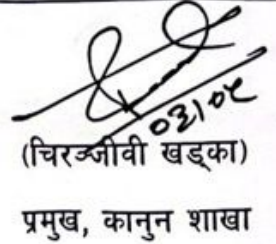 ०३।०८
(चिरञ्जीवी खड्का)
प्रमुख, कानुन शाखा